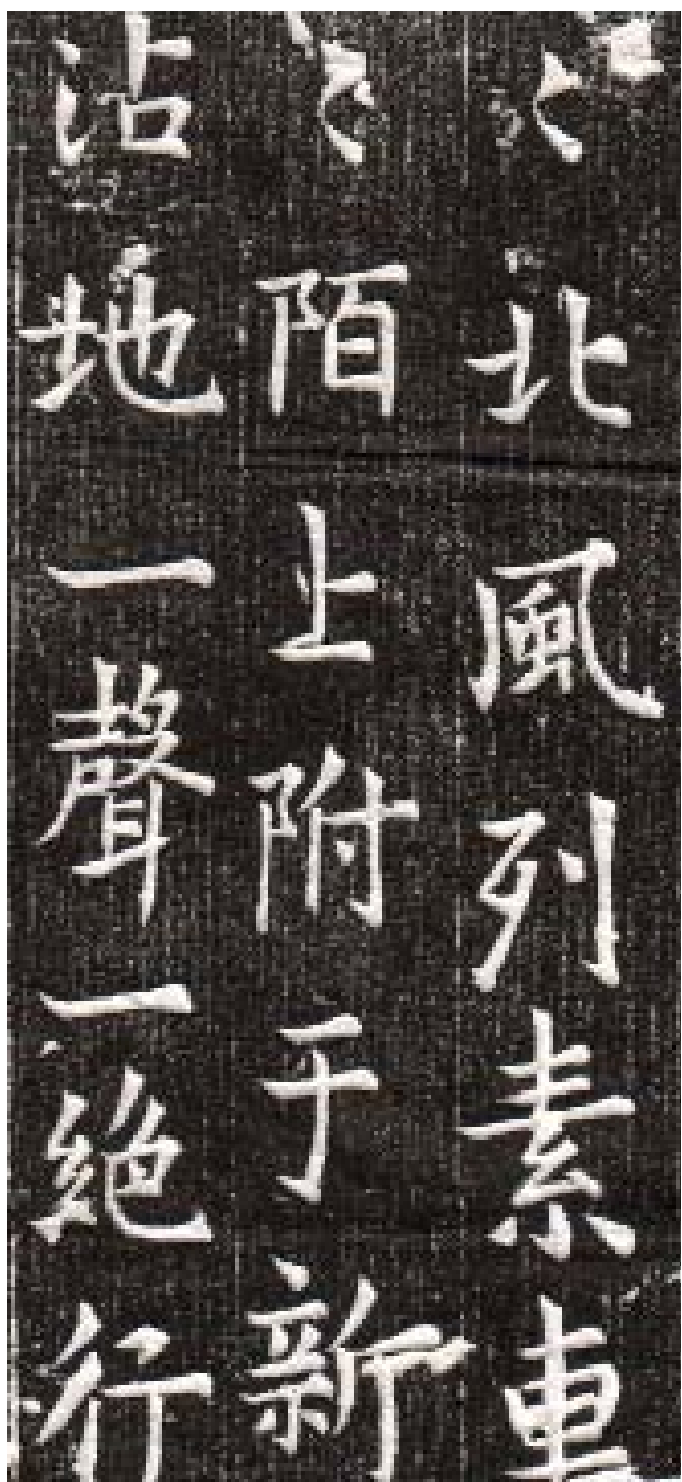 〻北風列素
〻陌上附于新
沾地一聲一絶行